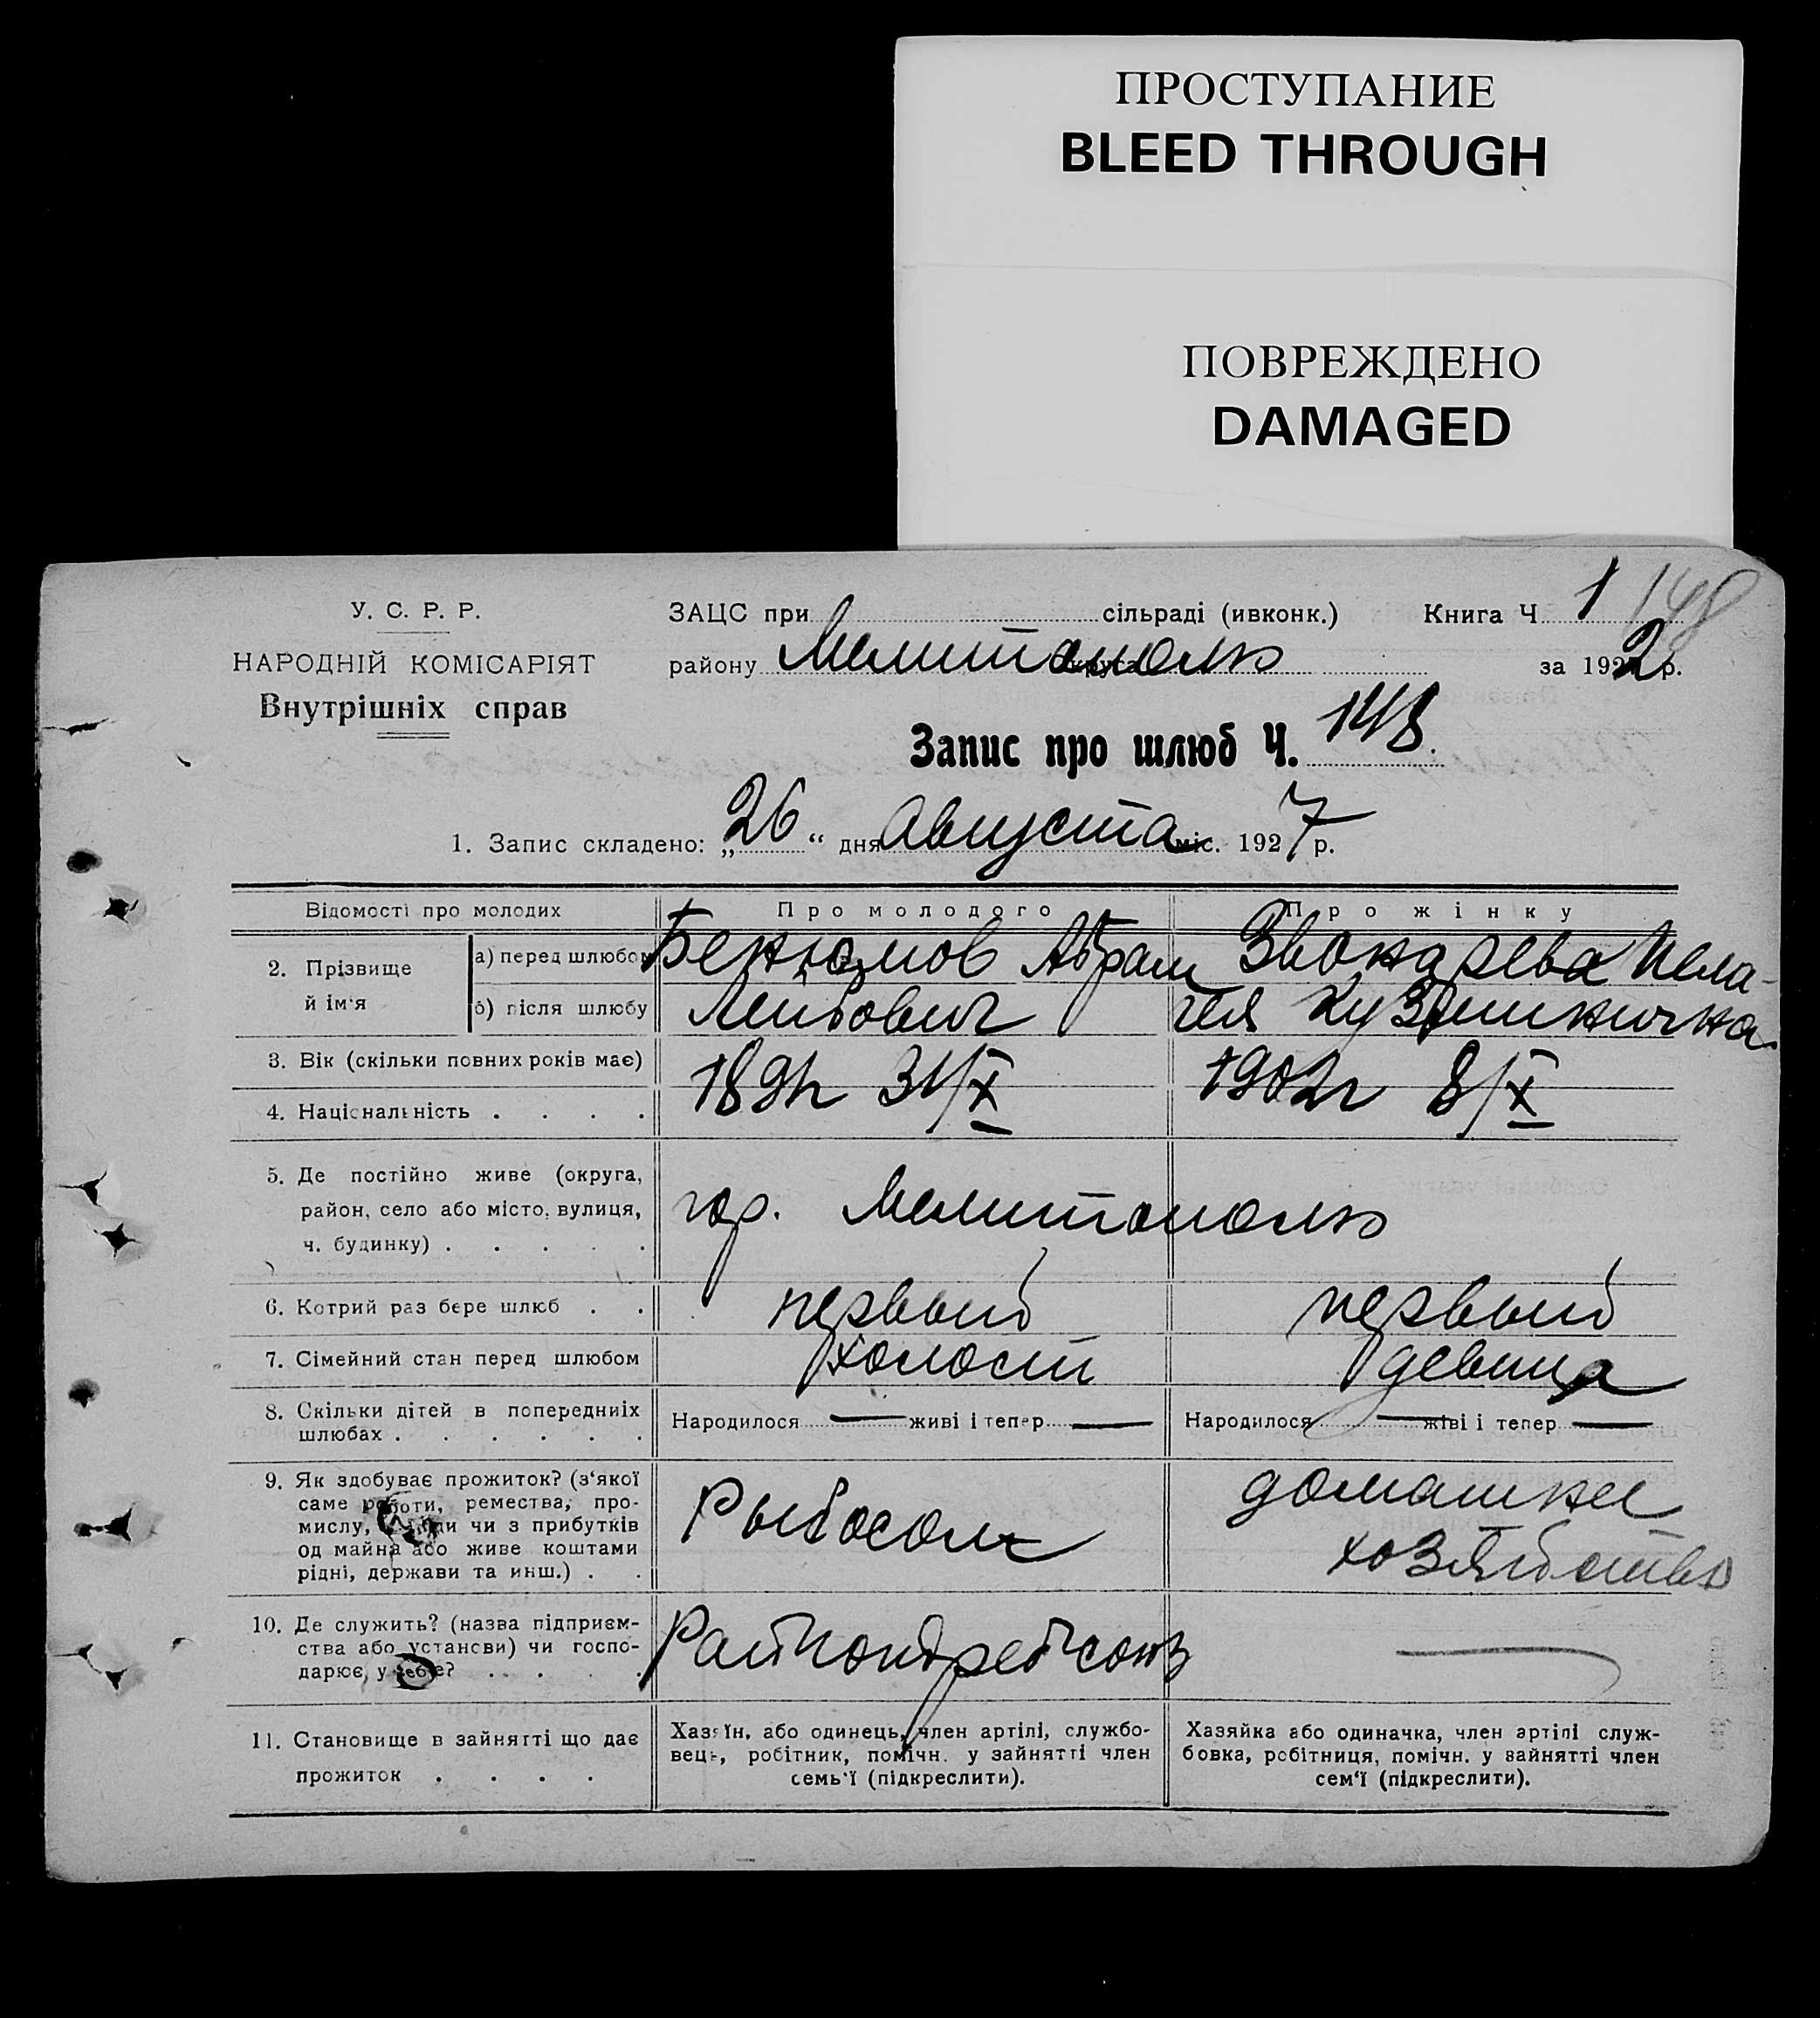 ПРОСТУПАНИЕ
BLEED THROUGH
ПОВРЕЖДЕНО
DAMAGED
У. С. Р. Р.
НАРОДНІЙ КОМІСАРІЯТ
Внутрішніх справ
ЗАЦС при сільраді (ивконк.) Книга Ч 1 148
району Мелитополь за 192 р.
Запис про шлюб Ч. 148.
1. Запис складено: „26“ дня Августа міс. 1927 р.
Відомості про молодих Про молодого Про жінку
2. Прізвище й ім'я
а) перед шлюбом
б) після шлюбу
Абрам
Лейбович
Пела-
гея Кузьминична
3. Вік (скільки повних років має)
4. Національність . . . .
31/X
1902г 8/X
5. Де постійно живе (округа,
район, село або місто, вулиця,
ч. будинку) . . . . .
гор. Мелитополь
6. Котрий раз бере шлюб . . первый первый
7. Сімейний стан перед шлюбом холост девица
8. Скільки дітей в попередніх
шлюбах . . . . . .
Народилося — живі і тепер — Народилося — живі і тепер —
9. Як здобуває прожиток? (з'якої
саме роботи, ремества, про-
мислу, чи з прибутків
од майна або живе коштами
рідні, держави та инш.) . .
Рыбосол
домашнее
хозяйство
10. Де служить? (назва підприєм-
ства або установи) чи госпо-
дарює, у себе? . . . .
—
11. Становище в зайнятті що дає
прожиток . . . .
Хазяїн, або одинець, член артілі, службо-
вець, робітник, помічн. у зайнятті член
семь'ї (підкреслити).
Хазяйка або одиначка, член артілі служ-
бовка, робітниця, помічн. у зайнятті член
сем'ї (підкреслити).